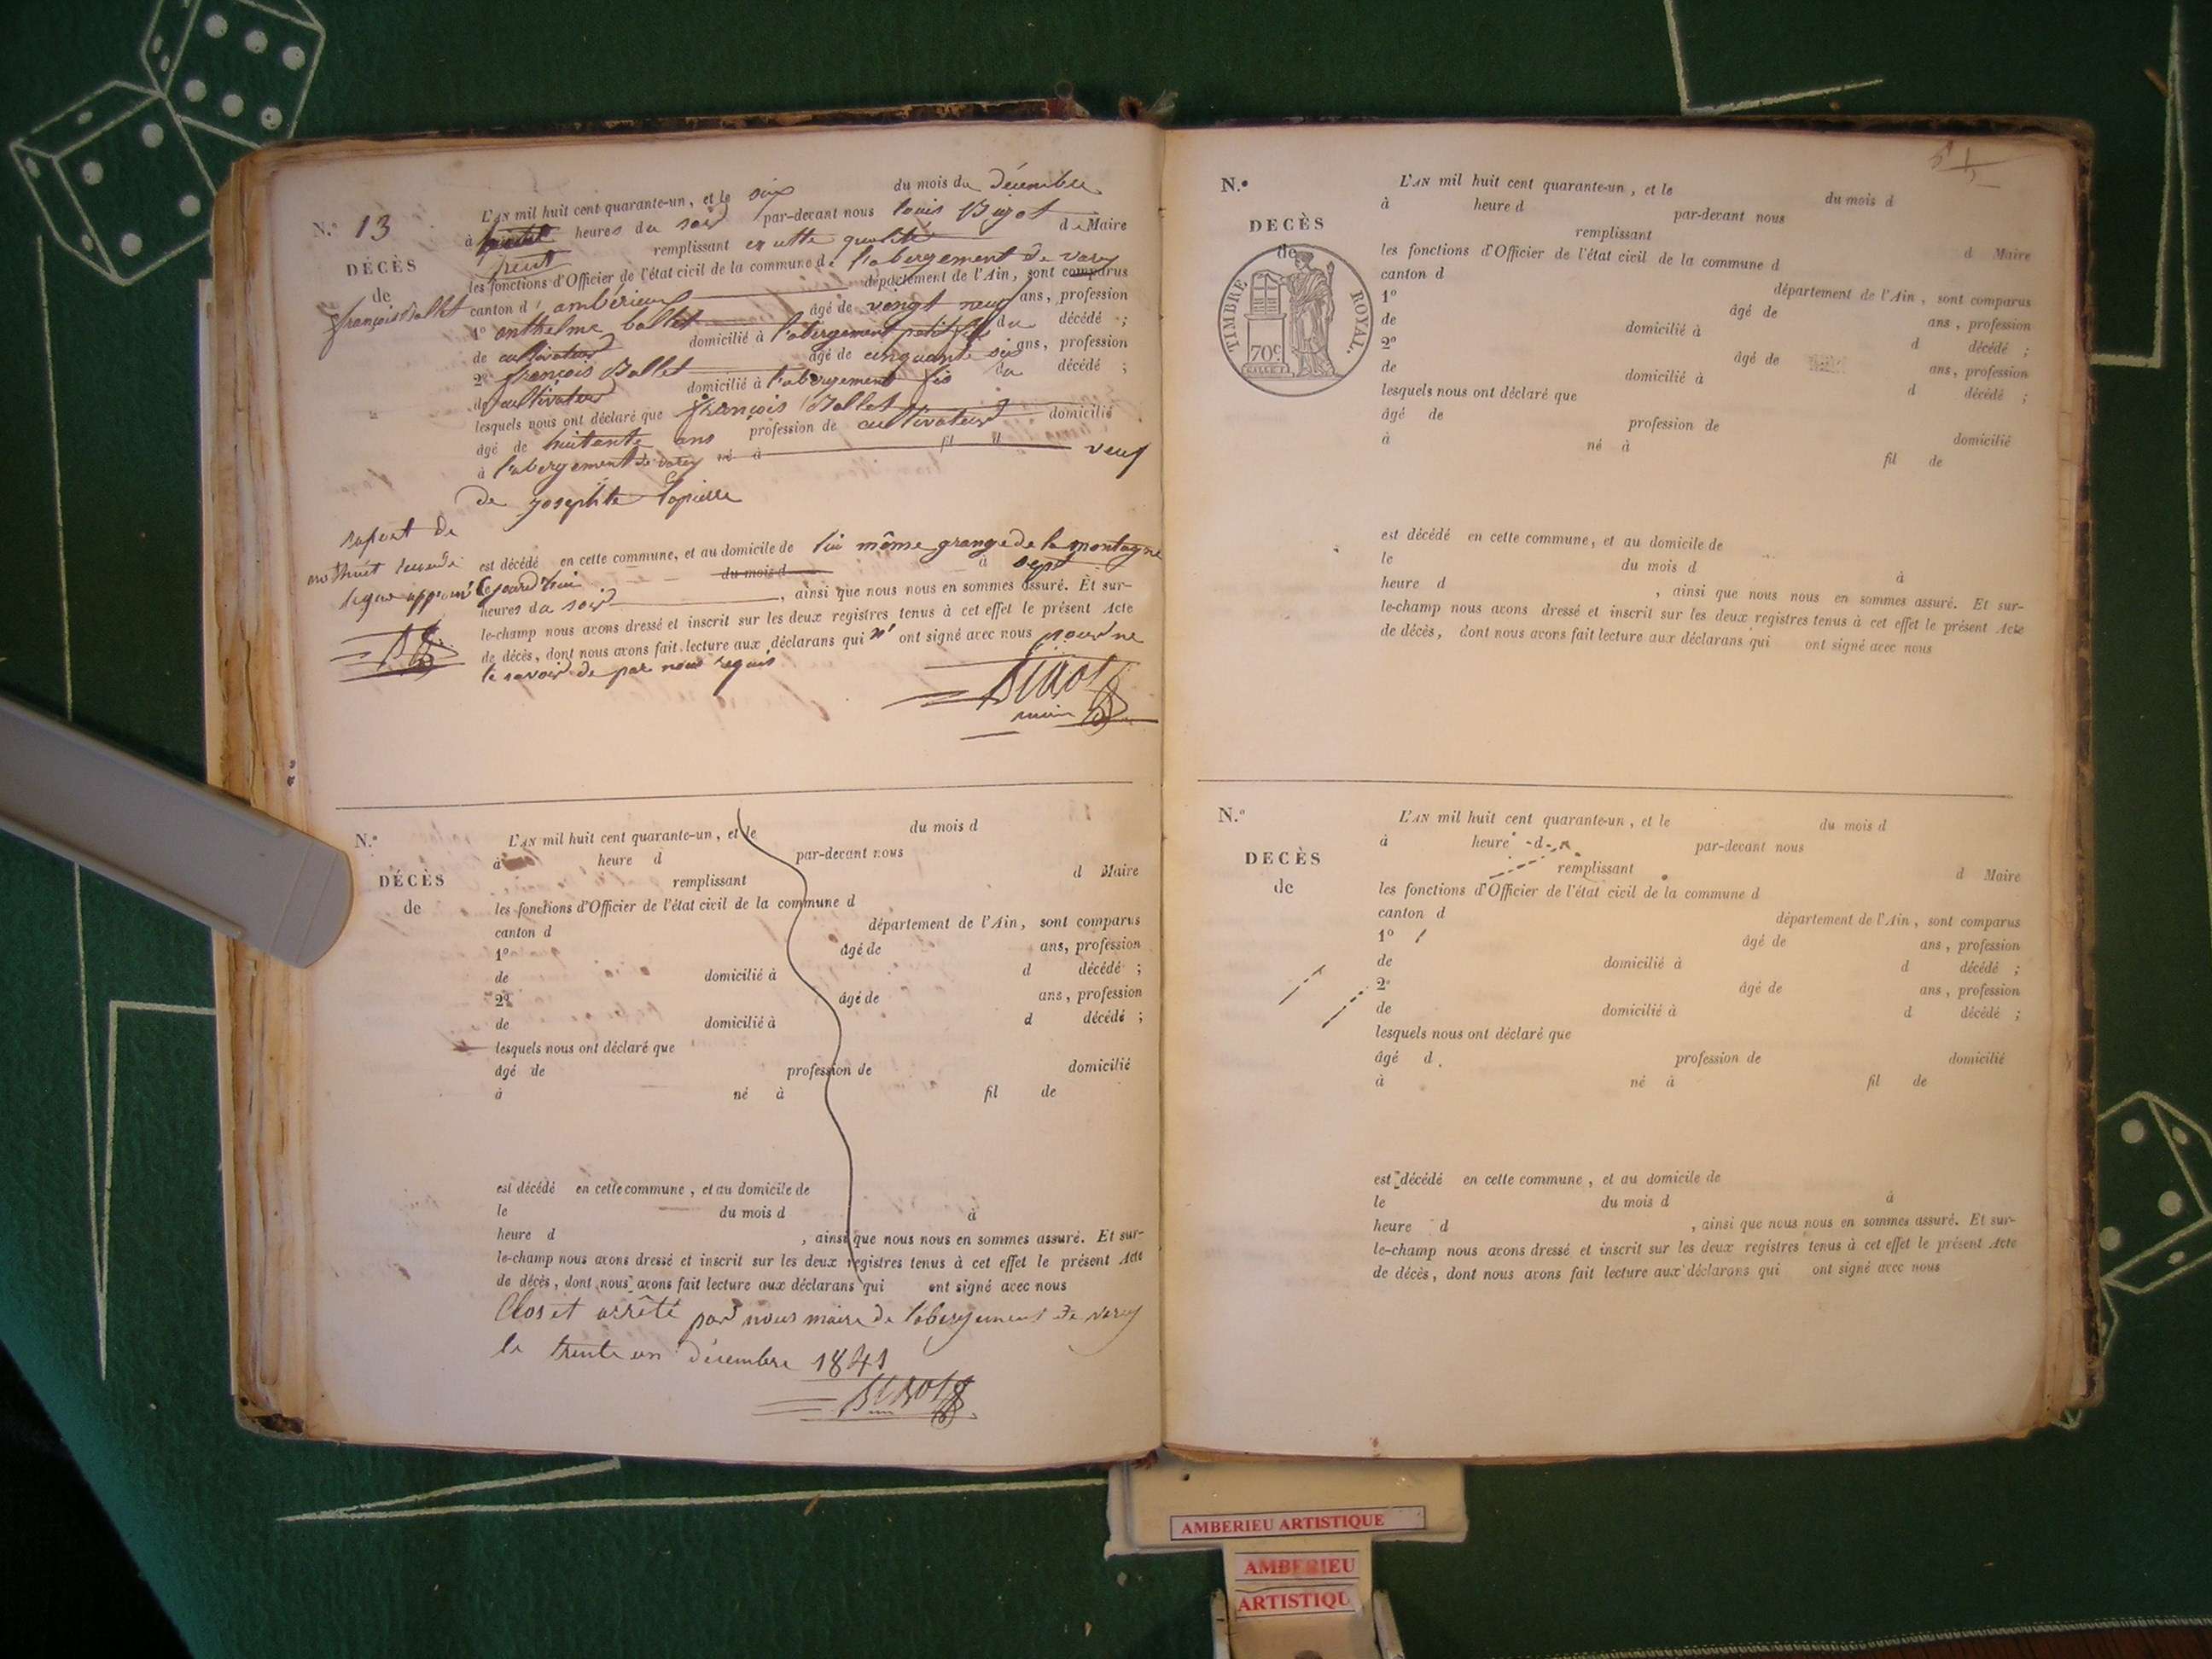 N.º 13
DÉCÈS
de
françois Ballet
L'AN mil huit cent quarante-un, et le six du mois de décembre
à heures du soir par-devant nous louis Bigot
huit
remplissant en cette qualité de Maire
les fonctions d'Officier de l'état civil de la commune de l'abergement de varey
canton d'ambérieux département de l'Ain, sont comparus
1º anthelme ballet âgé de veingt neuf ans, profession
de cultivateur domicilié à l'abergement petit fils du décédé ;
2º françois Ballet âgé de cinquante six ans, profession
de cultivateur domicilié à l'abergement fis du décédé ;
lesquels nous ont déclaré que françois Ballet
âgé de huitante ans profession de cultivateur domicilié
à l'abergement de varey né à fil d veuf
de josephte lapierre
mot huit seconde
ligne approuvé
est décédé en cette commune, et au domicile de lui même grange de la montagne
Cejourd'hui du mois d à sept
heures du soir, ainsi que nous nous en sommes assuré. Et sur-
le-champ nous avons dressé et inscrit sur les deux registres tenus à cet effet le présent Acte
de décès, dont nous avons fait lecture aux déclarans qui n'ont signé avec nous pour ne
le savoir de par nous requis
Bigot
maire
N.º
DÉCÈS
de
L'AN mil huit cent quarante-un, et le du mois d
à heure d par-devant nous
remplissant d Maire
les fonctions d'Officier de l'état civil de la commune d
canton d département de l'Ain, sont comparus
1º âgé de ans, profession
de domicilié à d décédé ;
2º âgé de ans, profession
de domicilié à d décédé ;
lesquels nous ont déclaré que
âgé de profession de domicilié
à né à fil de
est décédé en cette commune, et au domicile de
le du mois d à
heure d , ainsi que nous nous en sommes assuré. Et sur-
le-champ nous avons dressé et inscrit sur les deux registres tenus à cet effet le présent Acte
de décès, dont nous avons fait lecture aux déclarans qui ont signé avec nous
Clos et arrêté par nous maire de l'abergement de varey
le trente un décembre 1841
Bigot
N.º
DÉCÈS
de
TIMBRE ROYAL.
70c
L'AN mil huit cent quarante-un, et le du mois d
à heure d par-devant nous
remplissant d Maire
les fonctions d'Officier de l'état civil de la commune d
canton d département de l'Ain, sont comparus
1º âgé de ans, profession
de domicilié à d décédé ;
2º âgé de ans, profession
de domicilié à d décédé ;
lesquels nous ont déclaré que
âgé de profession de domicilié
à né à fil de
est décédé en cette commune, et au domicile de
le du mois d à
heure d , ainsi que nous nous en sommes assuré. Et sur-
le-champ nous avons dressé et inscrit sur les deux registres tenus à cet effet le présent Acte
de décès, dont nous avons fait lecture aux déclarans qui ont signé avec nous
N.º
DECÈS
de
L'AN mil huit cent quarante-un, et le du mois d
à heure d par-devant nous
remplissant d Maire
les fonctions d'Officier de l'état civil de la commune d
canton d département de l'Ain, sont comparus
1º âgé de ans, profession
de domicilié à d décédé ;
2º âgé de ans, profession
de domicilié à d décédé ;
lesquels nous ont déclaré que
âgé d profession de domicilié
à né à fil de
est décédé en cette commune, et au domicile de
le du mois d à
heure d , ainsi que nous nous en sommes assuré. Et sur-
le-champ nous avons dressé et inscrit sur les deux registres tenus à cet effet le présent Acte
de décès, dont nous avons fait lecture aux déclarans qui ont signé avec nous
AMBERIEU ARTISTIQUE
AMBERIEU
ARTISTIQU